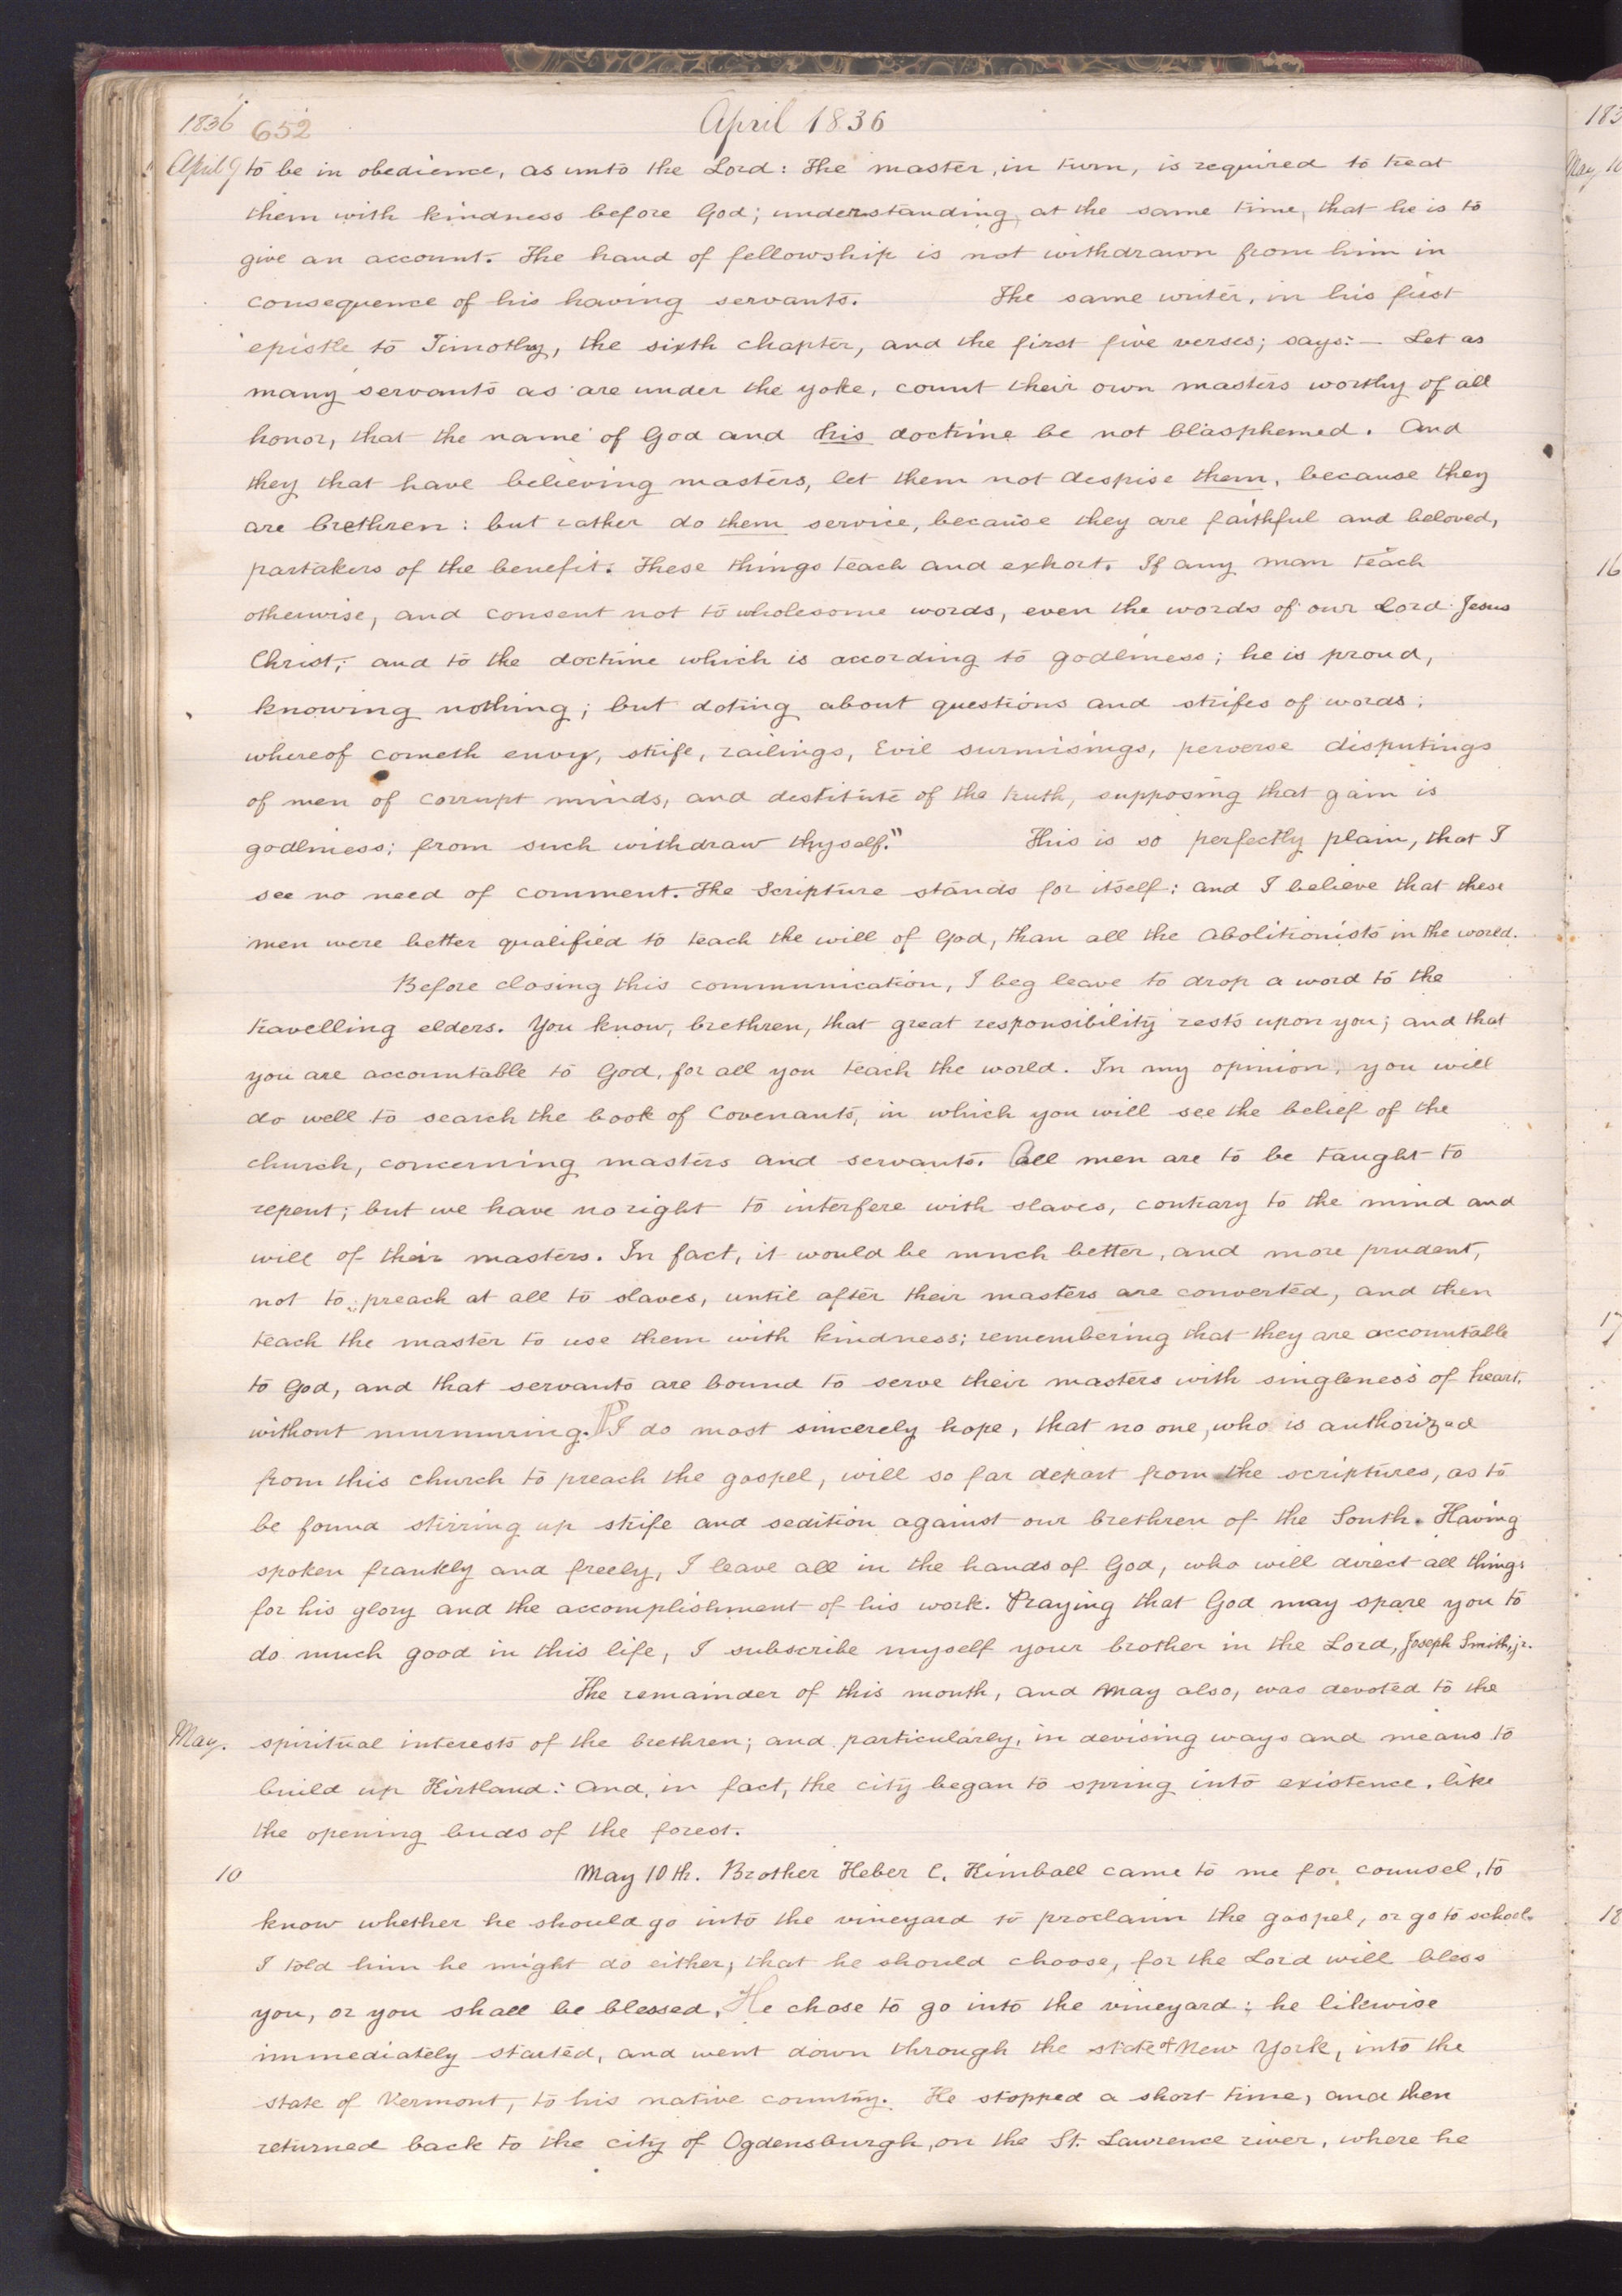 1836 652 April 1836
April 9 to be in obedience, as unto the Lord: The master, in turn, is required to treat
them with kindness before God; understanding, at the same time, that he is to
give an account. The hand of fellowship is not withdrawn from him in
consequence of his having servants. The same writer, in his first
epistle to Timothy, the sixth chapter, and the first five verses; says:— Let as
many servants as are under the yoke, count their own masters worthy of all
honor, that the name of God and his doctrine be not blasphemed. And
they that have believing masters, let them not despise them, because they
are brethren: but rather do them service, because they are faithful and beloved,
partakers of the benefit. These things teach and exhort. If any man teach
otherwise, and consent not to wholesome words, even the words of our Lord Jesus
Christ; and to the doctrine which is according to godliness; he is proud,
knowing nothing; but doting about questions and strifes of words;
whereof cometh envy, strife, railings, Evil surmisings, perverse disputings
of men of corrupt minds, and destitute of the truth, supposing that gain is
godliness; from such withdraw thyself." This is so perfectly plain, that I
see no need of comment. The Scripture stands for itself: and I believe that these
men were better qualified to teach the will of God, than all the Abolitionists in the world.
Before closing this communication, I beg leave to drop a word to the
travelling elders. You know, brethren, that great responsibility rests upon you; and that
you are accountable to God, for all you teach the world. In my opinion, you will
do well to search the book of Covenants, in which you will see the belief of the
church, concerning masters and servants. All men are to be taught to
repent; but we have no right to interfere with slaves, contrary to the mind and
will of their masters. In fact, it would be much better, and more prudent,
not to preach at all to slaves, until after their masters are converted, and then
teach the master to use them with kindness; remembering that they are accountable
to God, and that servants are bound to serve their masters with singleness of heart,
without murmuring. ¶ I do most sincerely hope, that no one, who is authorized
from this church to preach the gospel, will so far depart from the scriptures, as to
be found stirring up strife and sedition against our brethren of the South. Having
spoken frankly and freely, I leave all in the hands of God, who will direct all things
for his glory and the accomplishment of his work. Praying that God may spare you to
do much good in this life, I subscribe myself your brother in the Lord, Joseph Smith, jr.
The remainder of this month, and May also, was devoted to the
May. spiritual interests of the brethren; and particularly, in devising ways and means to
build up Kirtland: And, in fact, the city began to spring into existence, like
the opening buds of the forest.
10 May 10th. Brother Heber C. Kimball came to me for counsel, to
know whether he should go into the vineyard to proclaim the gospel, or go to school.
I told him he might do either, that he should choose, for the Lord will bless
you, or you shall be blessed. He chose to go into the vineyard: he likewise
immediately started, and went down through the state of New York, into the
state of Vermont, to his native country. He stopped a short time, and then
returned back to the city of Ogdensburgh, on the St. Lawrence river, where he
183
May 10
16
17
18